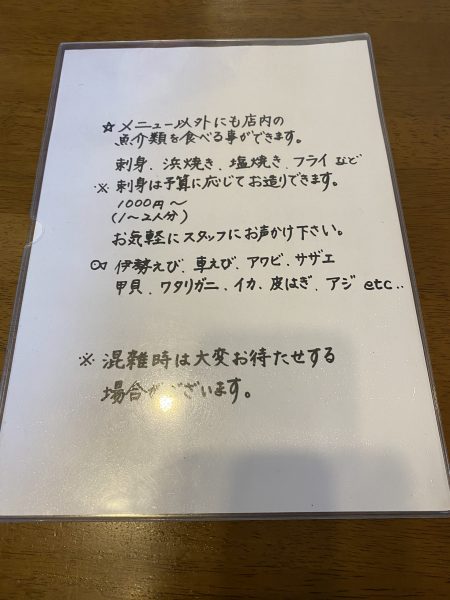 ☆メニュー以外にも店内の
魚介類を食べる事ができます。
刺身、浜焼き、塩焼き、フライなど
※刺身は予算に応じてお造りできます。
1000円〜
(1〜2人分)
お気軽にスタッフにお声かけ下さい。
伊勢えび、車えび、アワビ、サザエ
甲貝、ワタリガニ、イカ、皮はぎ、アジ etc..
※混雑時は大変お待たせする
場合がございます。